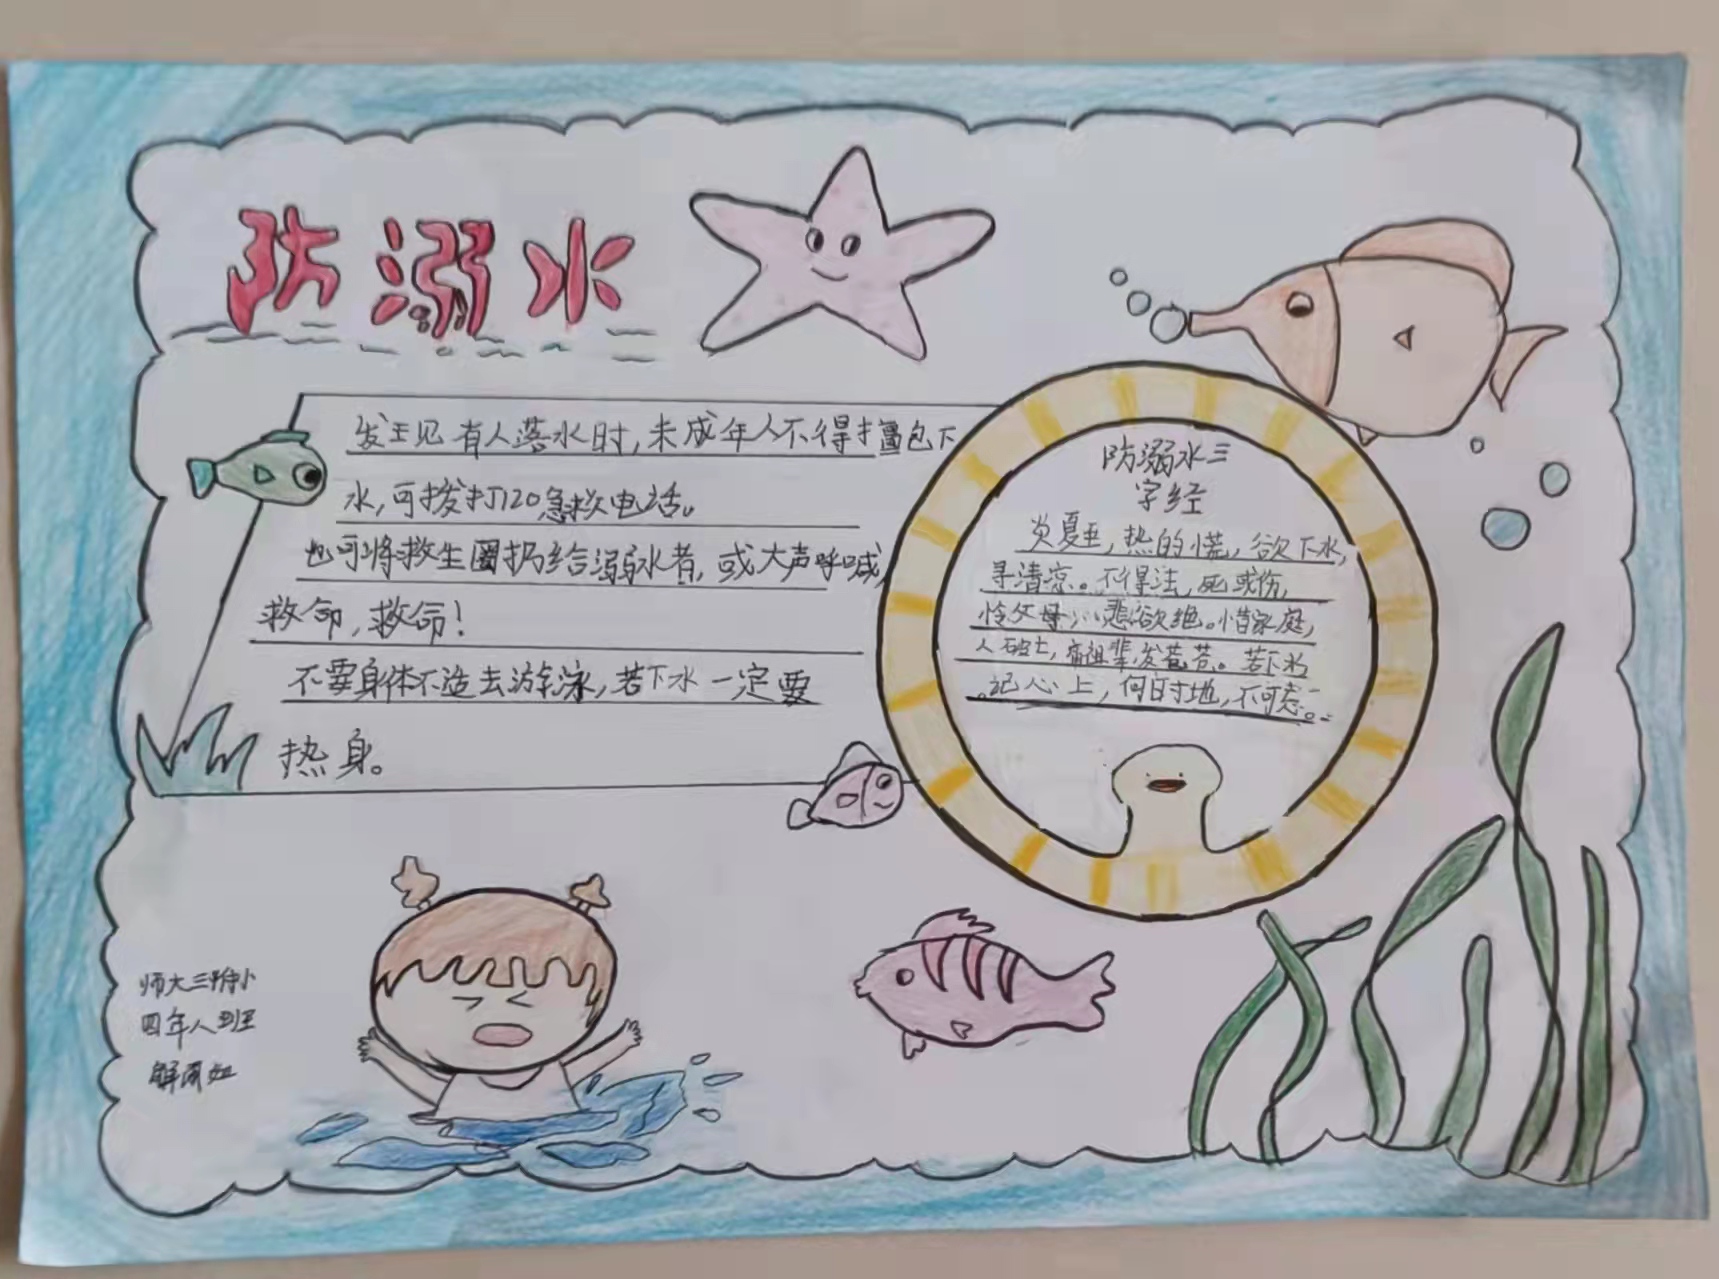 防溺水
发现有人落水时,未成年人不得擅自下
水,可拨打120急救电话。
也可将救生圈扔给溺水者,或大声呼喊,
救命,救命!
不要身体不适去游泳,若下水一定要
热身。
防溺水三
字经
炎夏至,热的慌,欲下水,
寻清凉。不得法,死或伤,
怜父母,悲欲绝。惜家庭,
人 白发苍苍。若下水
记心上,何时地,不可忘。
师大三附小
四年八班